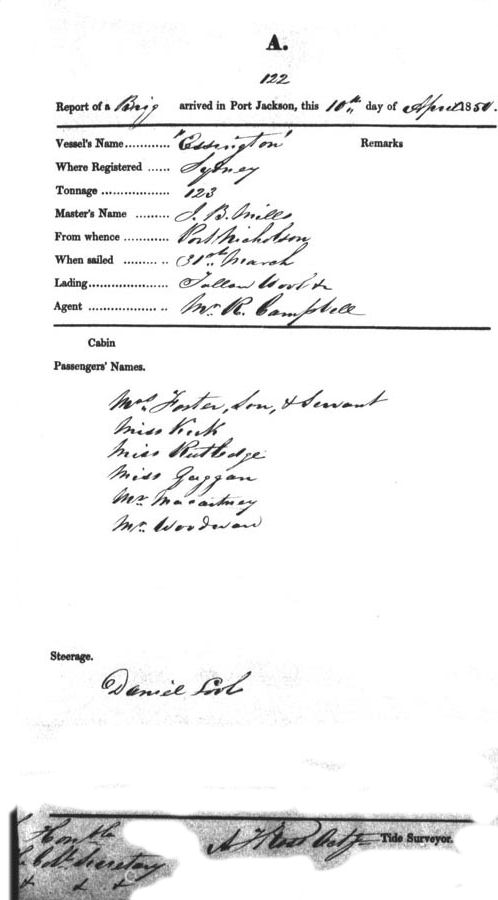 A.
122
Report of a Brig arrived in Port Jackson, this 10th day of April 1850.
Vessel's Name............ "Essington" Remarks
Where Registered ...... Sydney
Tonnage .................. 123
Master's Name ......... J. B. Mills
From whence ............ Port Nicholson
When sailed ......... .. 31st March
Lading..................... Tallow Wool &
Agent .................. .. Mr. R. Campbell
Cabin
Passengers' Names.
Mrs. Foster, Son, & Servant
Miss Kirk
Miss Rutledge
Miss Gaggan
Mr. Macartney
Mr. Woodwan
Steerage.
Daniel
Honble
Col Secretary Tide Surveyor.